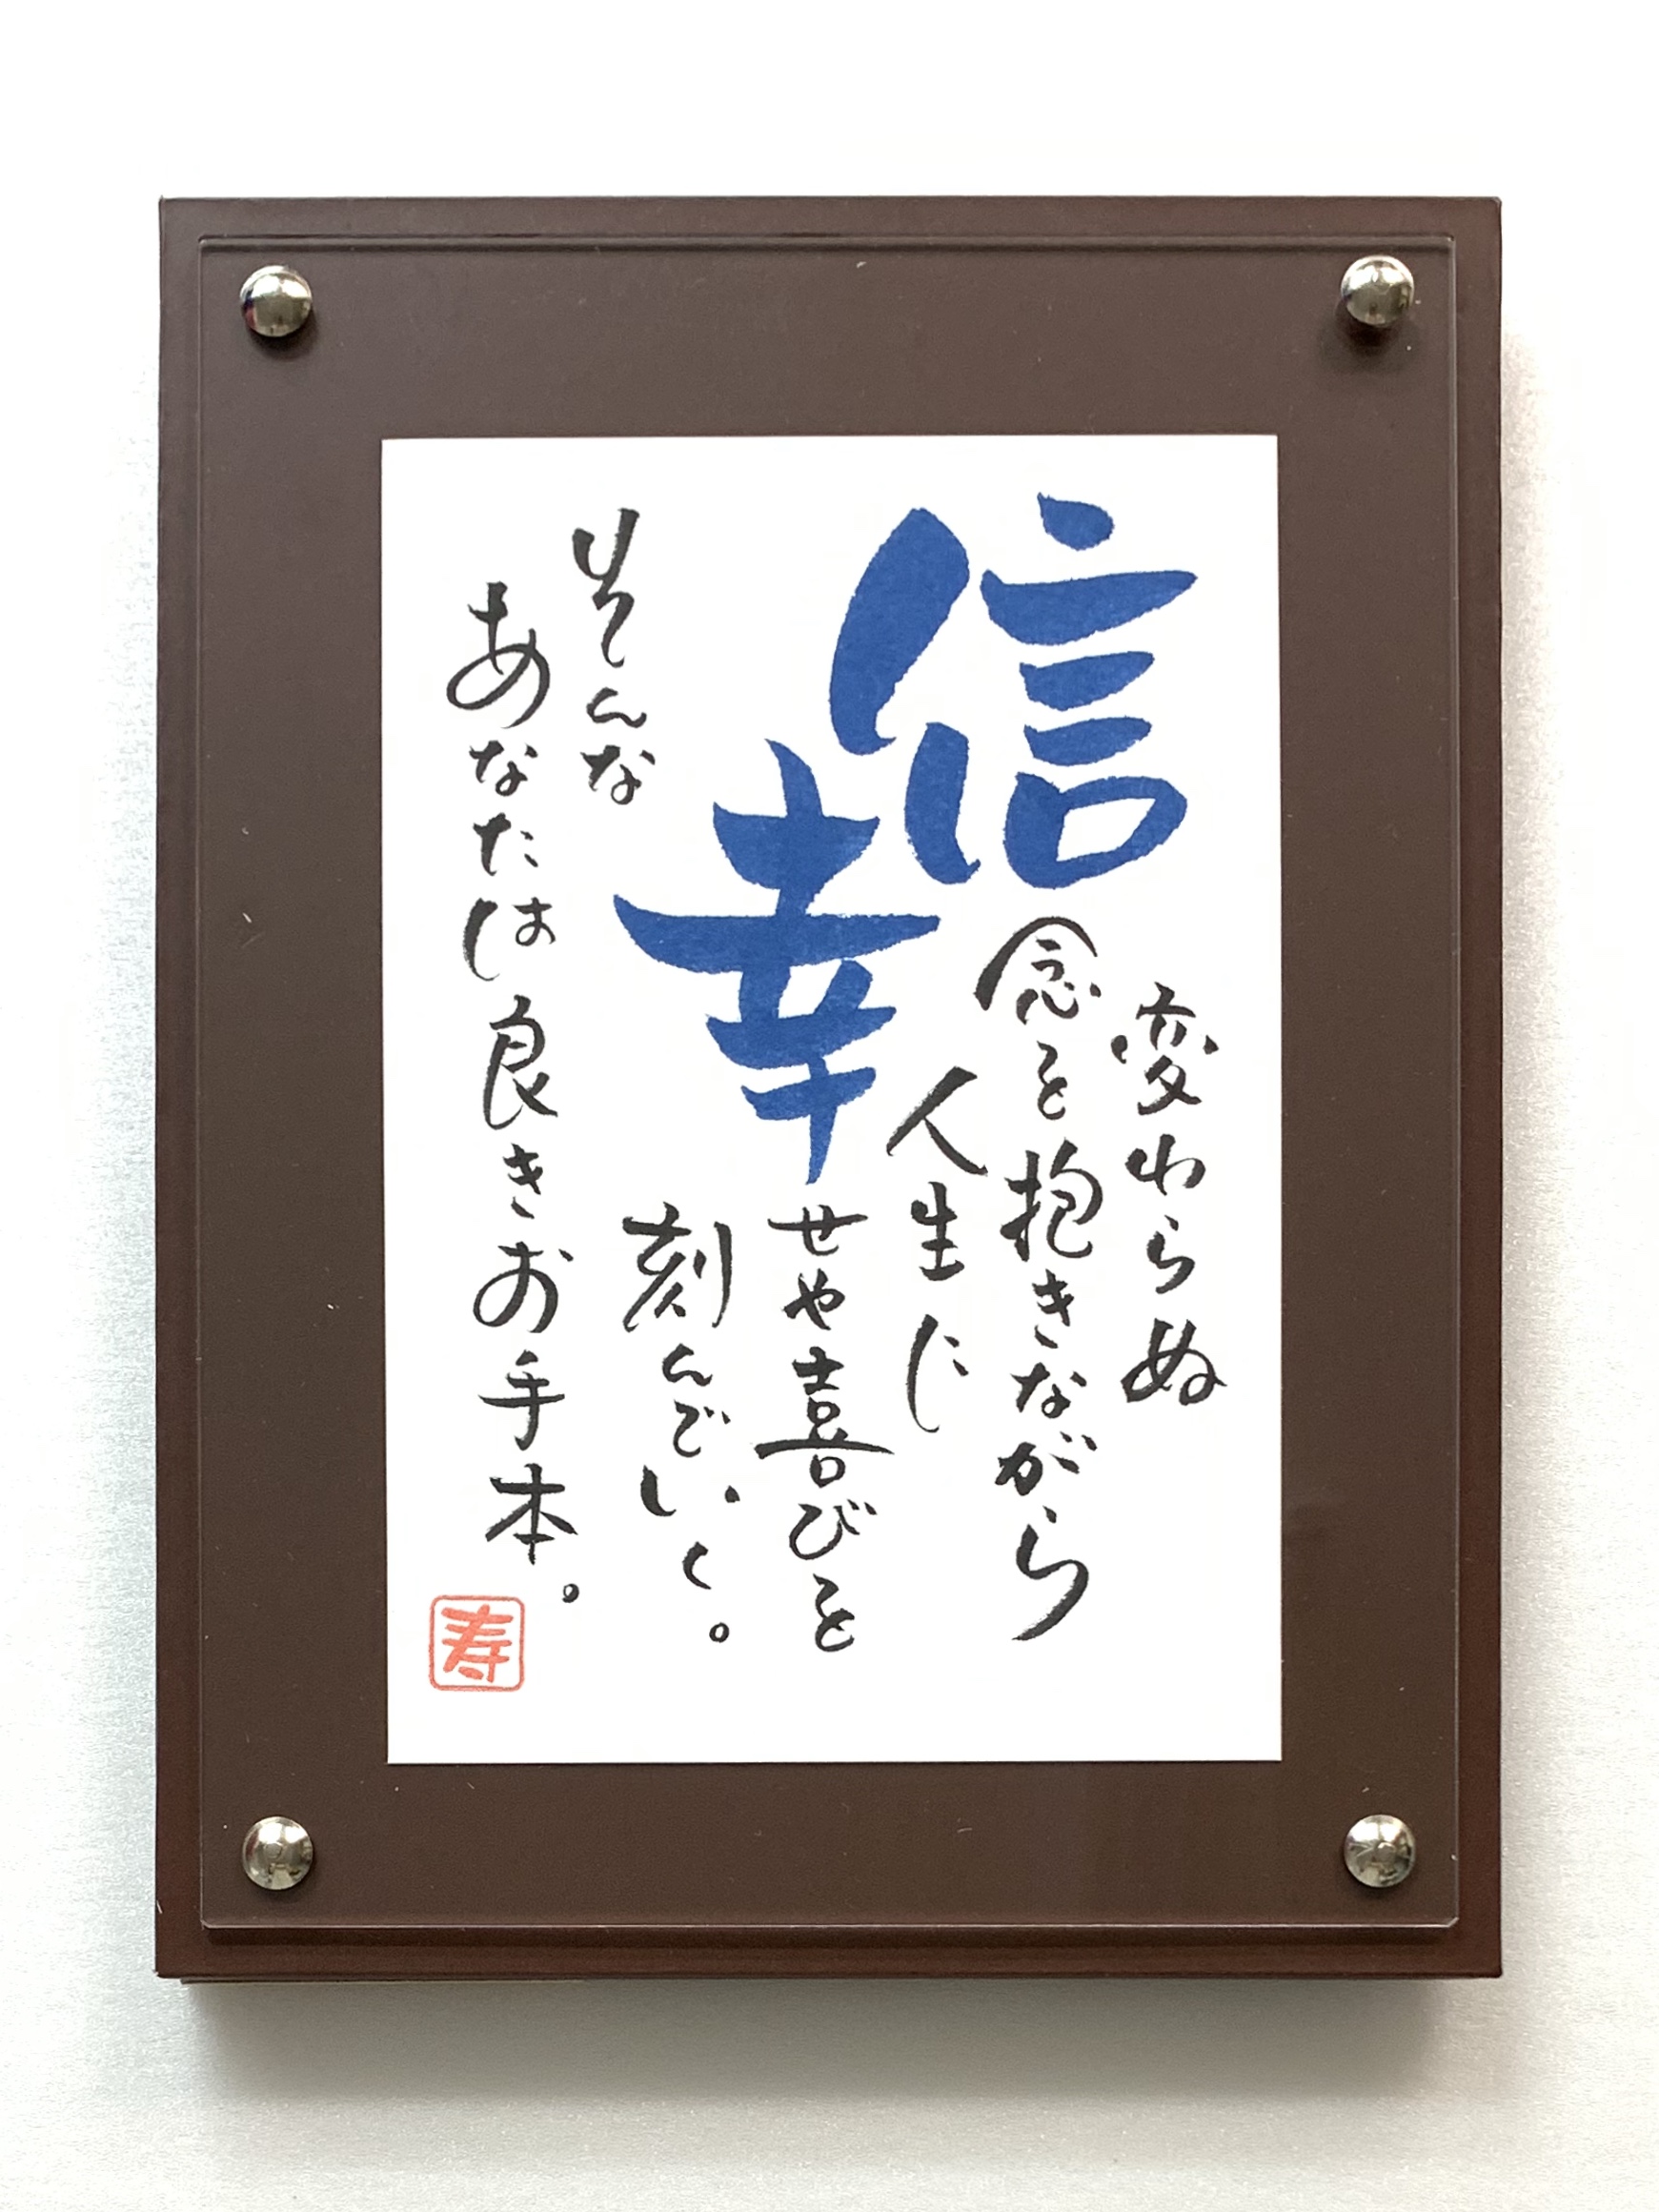 変わらぬ
信念を抱きながら
人生に
幸せや喜びを
刻んでいく。
そんな
あなたは良きお手本。
寿